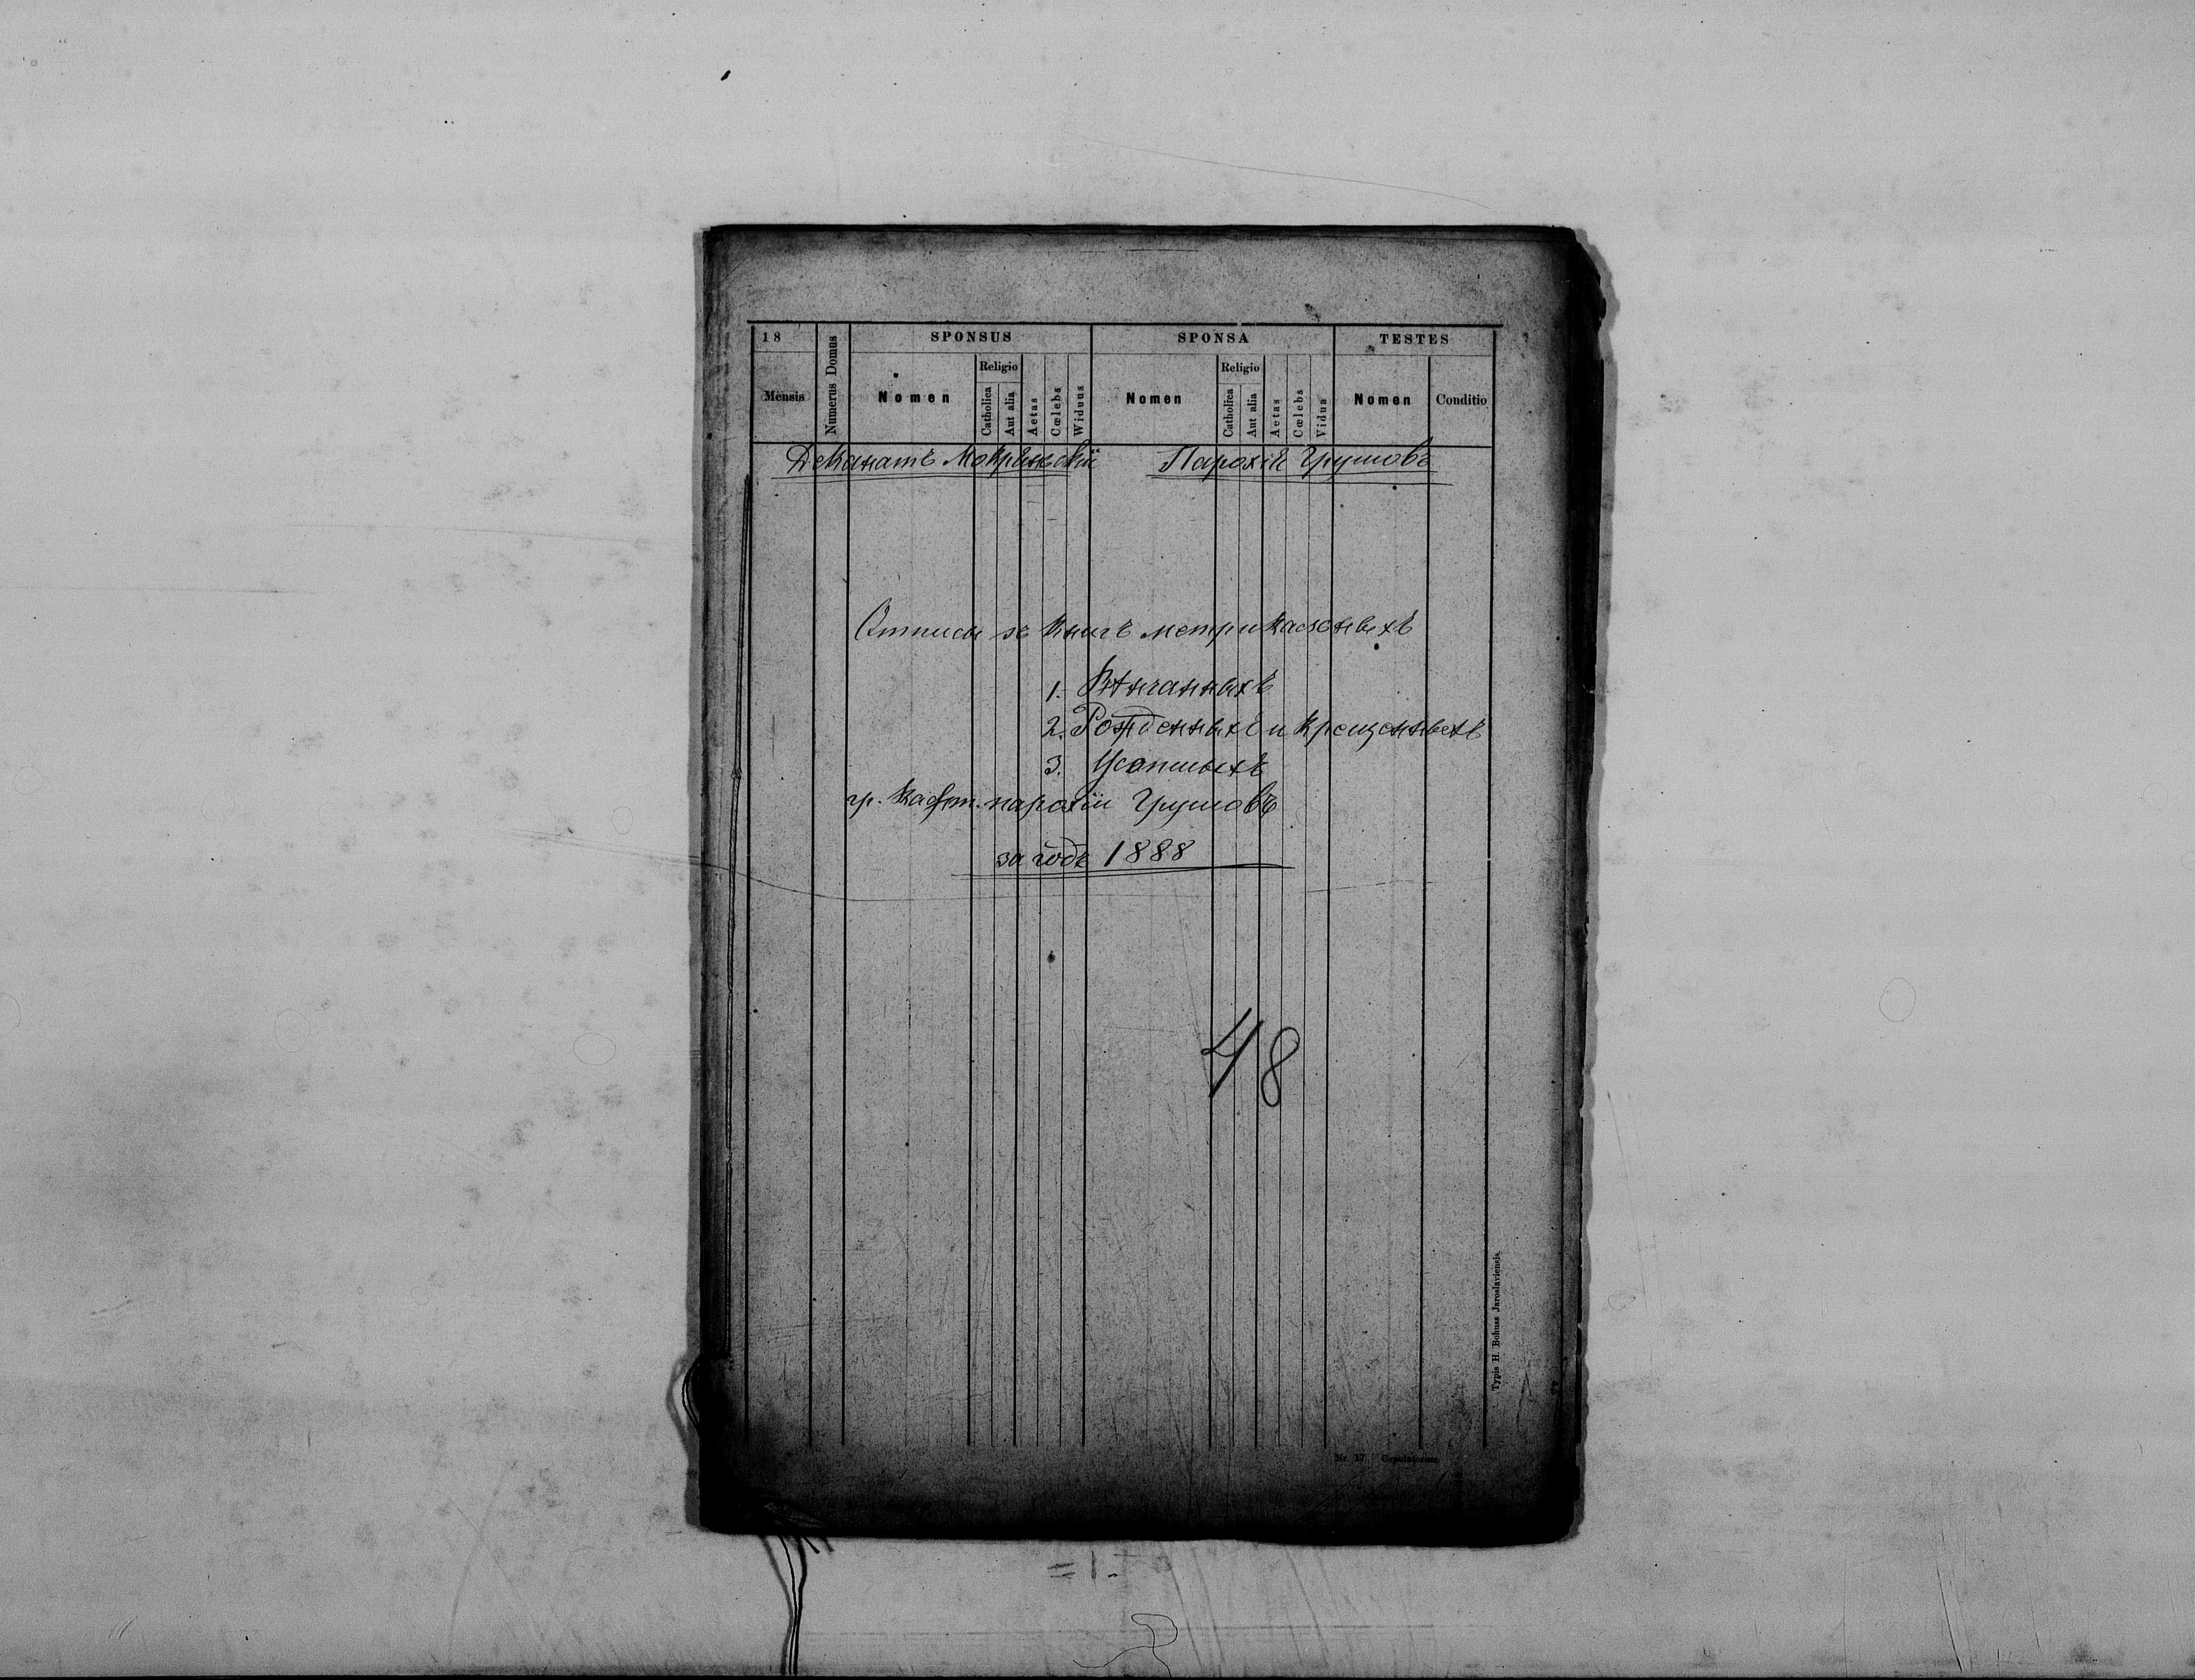 18
Mensis
Numerus Domus
SPONSUS
Nomen
Religio
Catholica
Aut alia
Aetas
Cœlebs
Widuus
SPONSA
Nomen
Religio
Catholica
Aut alia
Aetas
Cœlebs
Vidua
TESTES
Nomen
Conditio
Деканатъ Мокрянскій Парохія Грушовъ
Отписи зъ книгъ метрикальныхъ
1. Вѣнчанныхъ
2. Рожденныхъ и крещенныхъ
3. Усопшыхъ
гр. кафт. парохіи Грушовъ
за годъ 1888
48
Typis H. Bohuss Jaroslaviensis.
Nr. 17. Copulatorum